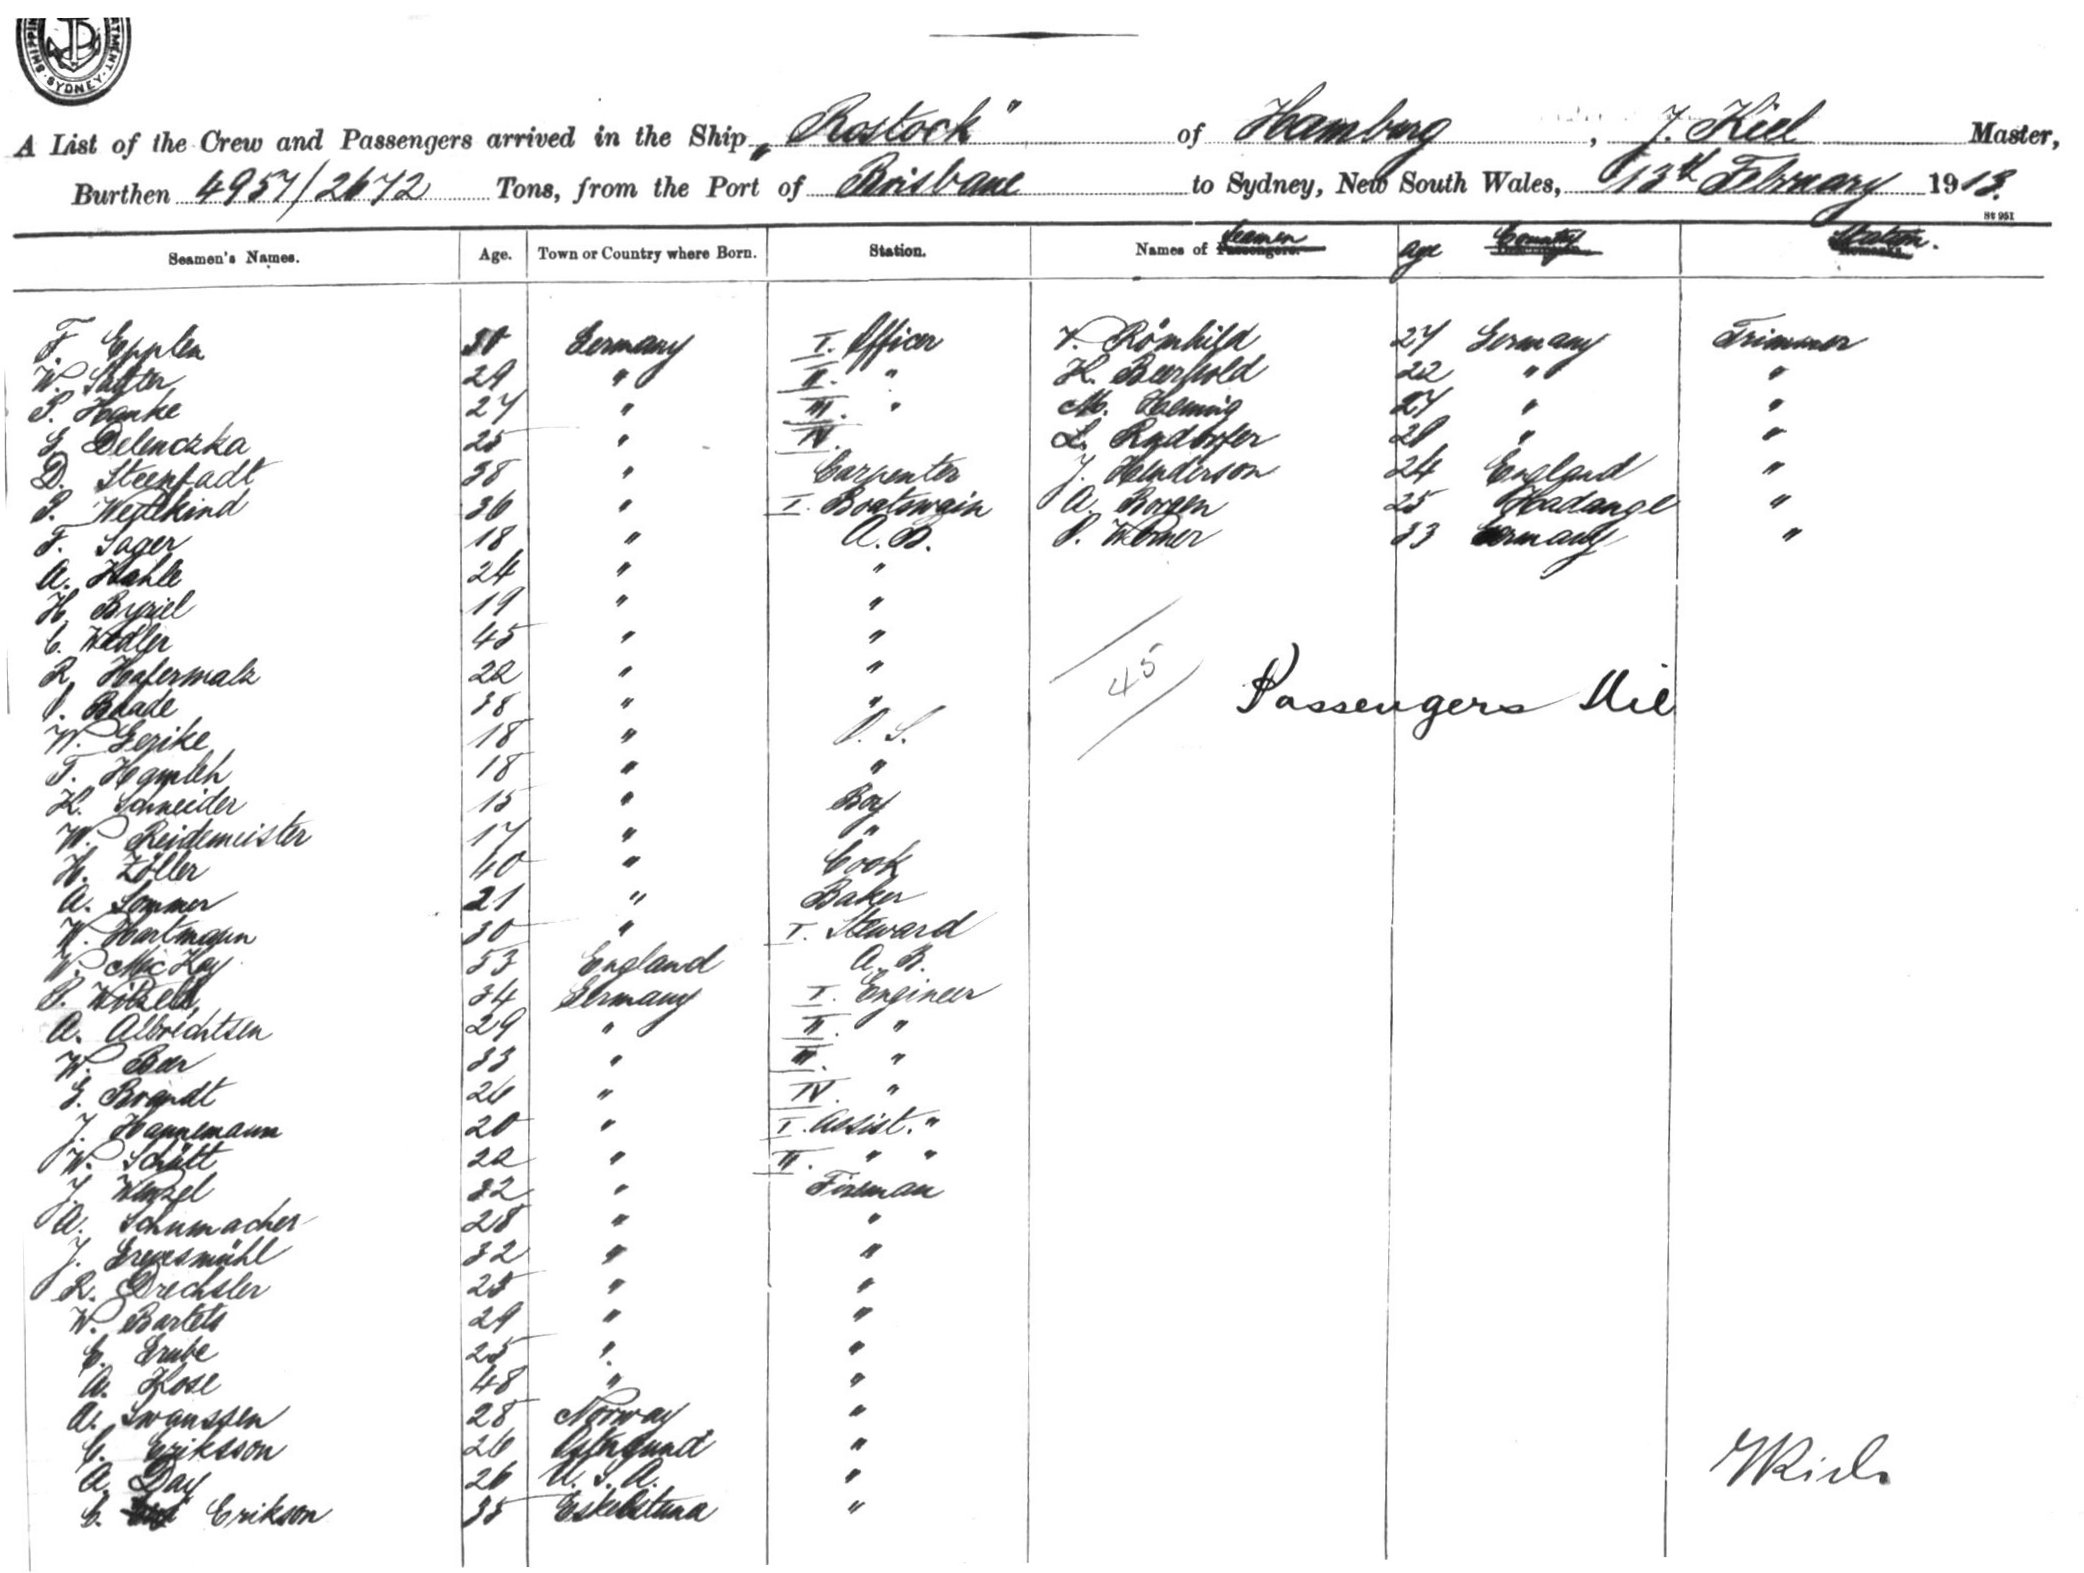 SHIPPING DEPARTMENT · SYDNEY
A List of the Crew and Passengers arrived in the Ship „Rostock" of Hamburg, J. Kiel Master,
Burthen 4957/2672 Tons, from the Port of Brisbane to Sydney, New South Wales, 13th February 1913.
St 951
Seamen's Names. Age. Town or Country where Born. Station. Names of Seamen age Country Station.
F. Epplen Germany I. Officer V. Römhild 27 Germany Trimmer
W. 29 " II. " H. 22 " "
P. Hanke 27 " III. " M. 27 " "
G. Delenczka 25 " IV. L. " "
D. 38 " Carpenter J. Henderson 24 England "
P. 36 " I. Boatswain A. 25 "
F. Sager 18 " A.B. P. 33 Germany "
A. Kahle 24 " "
H. 19 " "
C. 45 " "
R. Hafermalz 22 " "
P. Baade 38 " "
W. Gerike 18 " O.S.
T. 18 " "
K. Schneider 15 " Boy
W. Reidemeister 17 " "
H. Zöller 40 " Cook
A. Sommer 21 " Baker
W. Hartmann 30 " I. Steward
W. Mc Kay 53 England A.B.
P. 34 Germany I. Engineer
A. Albrechtsen 29 " II. "
W. 33 " III. "
G. Brandt 26 " IV. "
J. Hannemann 20 " I. Assist. "
W. Schütt 22 " II. " "
J. Wenzel 32 " Fireman
A. Schumacher 28 " "
J. Grevesmühl 32 " "
R. Drechsler 25 " "
W. Bartels 29 " "
E. Grube 25 " "
A. Kose 48 " "
A. Swanssen 28 Norway "
C. Eriksson 26 "
A. Day 26 U.S.A. "
C. Erikson 35 Eskelstuna "
45
Passengers Nil